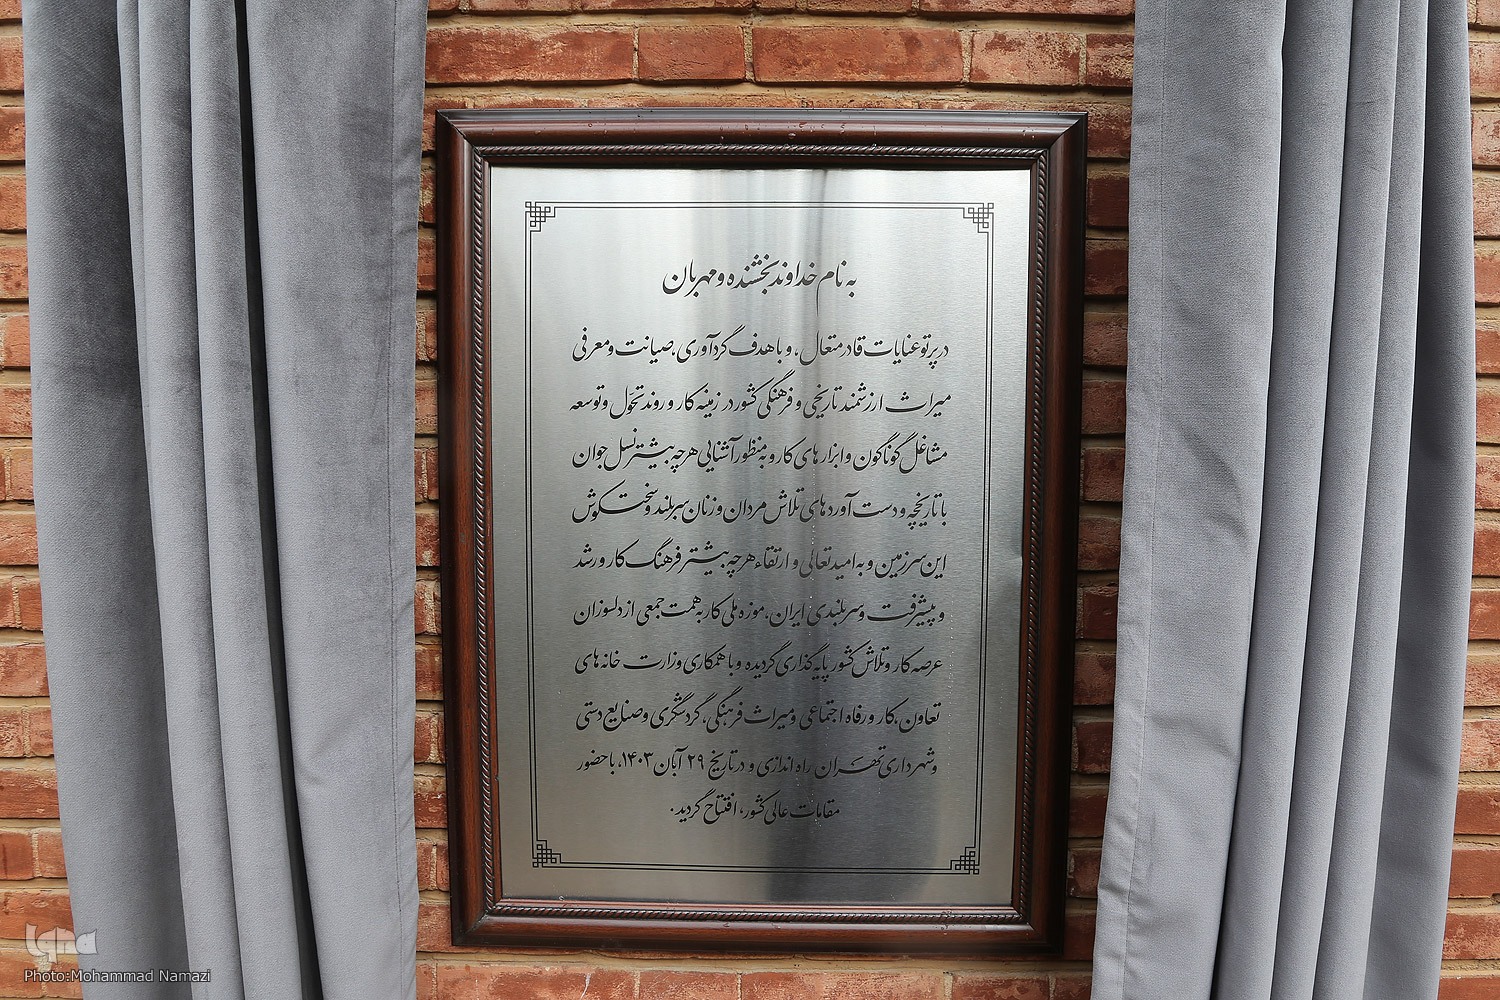 به نام خداوند بخشنده و مهربان
در پرتو عنایات قادر متعال، و با هدف گردآوری، صیانت و معرفی
میراث ارزشمند تاریخی و فرهنگی کشور در زمینه کار و روند تحّول و توسعه
مشاغل گوناگون و ابزارهای کار و به منظور آشنایی هرچه بیشتر نسل جوان
با تاریخچه و دست آوردهای تلاش مردان و زنان سربلند و سختکوش
این سرزمین و به امید تعالی و ارتقاء هرچه بیشتر فرهنگ کار و رشد
و پیشرفت و سربلندی ایران، موزه ملی کار به همت جمعی از دلسوزان
عرصه کار و تلاش کشور پایه گذاری گردیده و با همکاری وزارت خانه های
تعاون، کار و رفاه اجتماعی و میراث فرهنگی، گردشگری و صنایع دستی
و شهرداری تهران راه اندازی و در تاریخ ۲۹ آبان ۱۴۰۳، با حضور
مقامات عالی کشور، افتتاح گردید.
Iqna
Photo:Mohammad Namazi